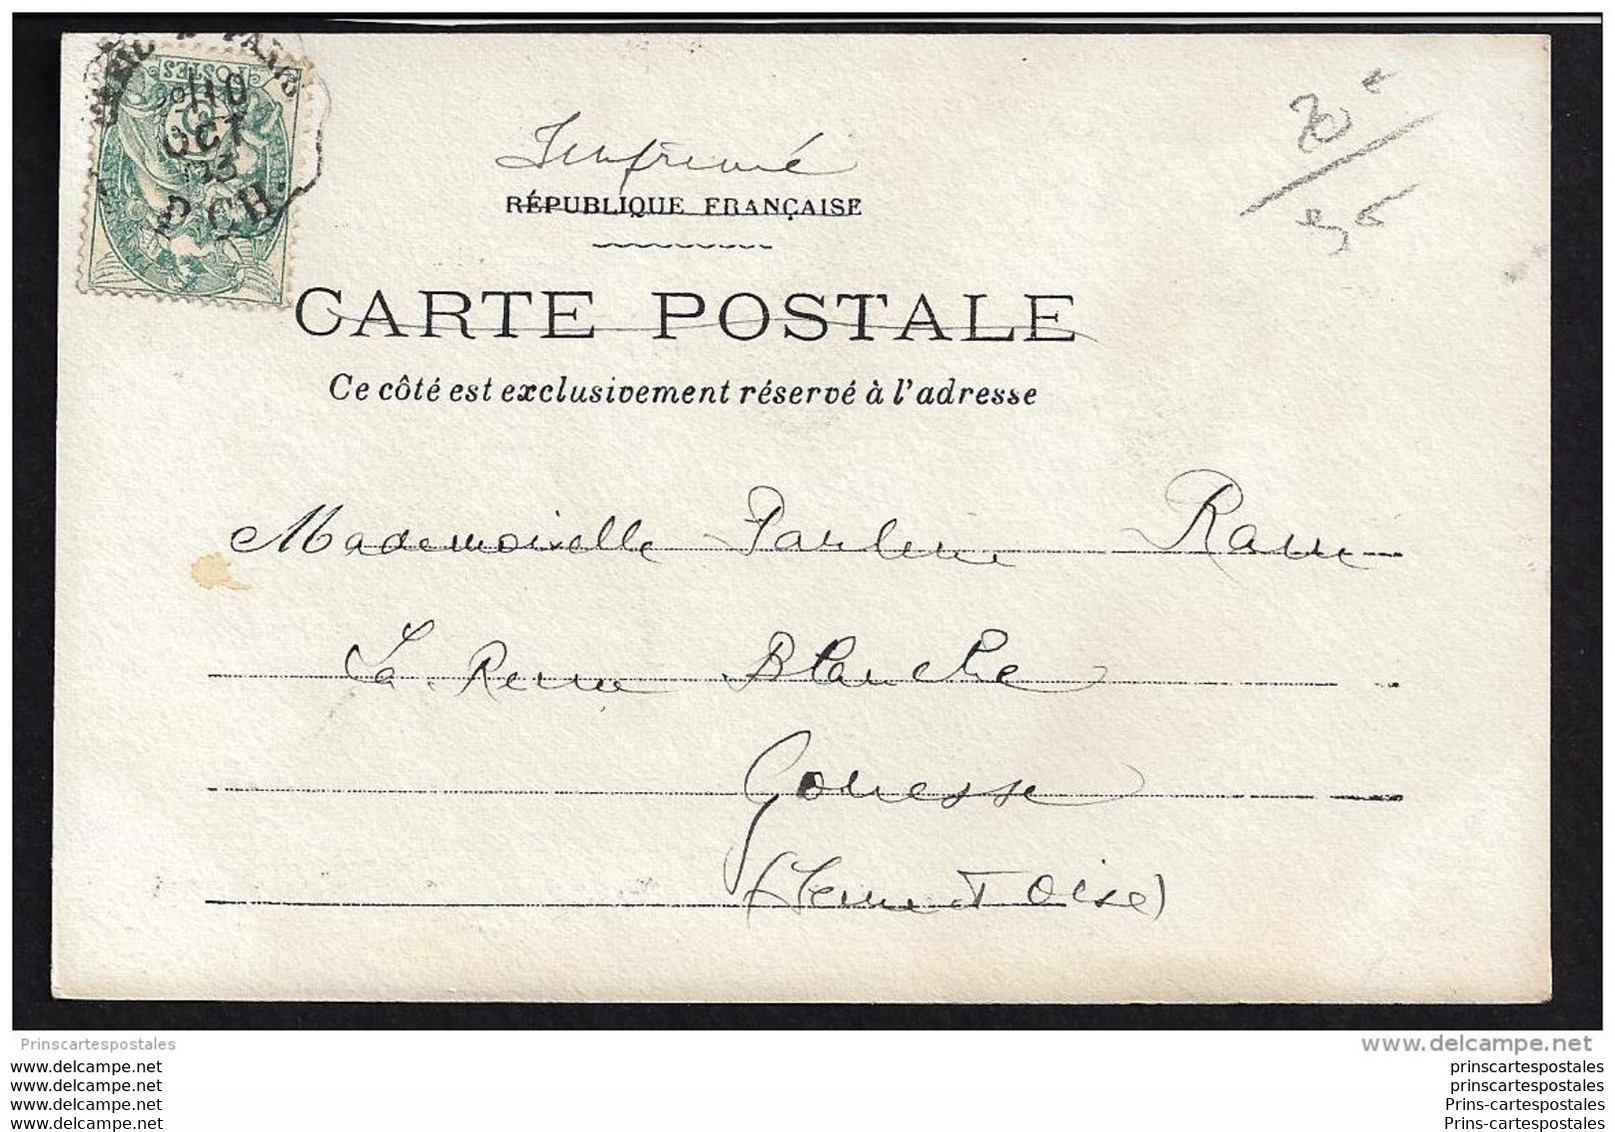 PARIS
POSTES
10
OCT
03
Imprimé
RÉPUBLIQUE FRANÇAISE
CARTE POSTALE
Ce côté est exclusivement réservé à l'adresse
20
95
Mademoiselle
La Reine Blanche
Gonesse
(Seine et Oise)
Prinscartespostales
www.delcampe.net
www.delcampe.net
prinscartespostales
www.delcampe.net
prinscartespostales
www.delcampe.net
Prins-cartespostales
www.delcampe.net
Prins-cartespostales